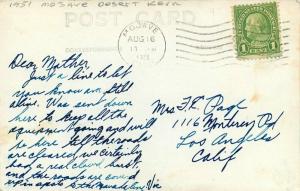 1931 MOJAVE DESERT KERN
POST CARD
MOJAVE
AUG 16
1 CENT 1
Dear Mother
Just a line to let
you know am still
alive. Was sent down
here to keep all the
equipment going and will
be here till the roads
are cleared, we certainly
had a real cloud burst,
and the roads are covered
up in spots
Vic
Mrs F. E. Page
1116 Monterey Rd
Los Angeles
Calif